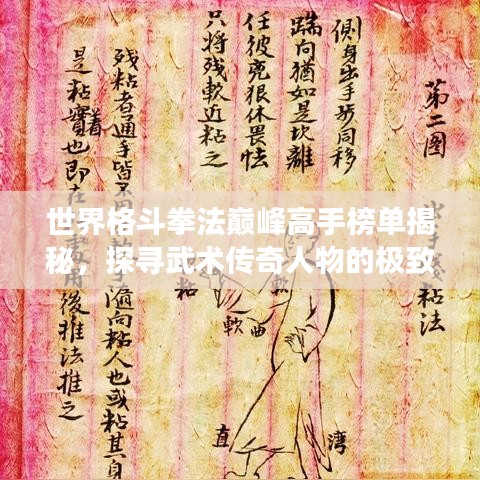 世界格斗拳法巅峰高手榜单揭
秘，探寻武术传奇人物的极致
第二圖
粘法
側身出手步同移
踹向猶如是坎離
任彼兇狠休畏怯
只将残軟近粘之
残粘者通手皆
向粘人也或粘其身
是粘實也即在
着
後推法推之
粘
軟
曲
直
灣